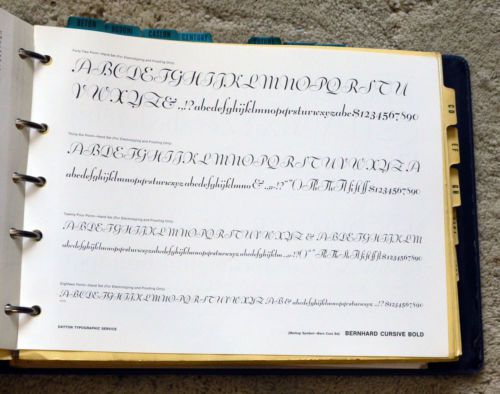 BETON
BODONI
CASLON
CENTURY
Forty Two Point—Hand Set (For Electrotyping and Proofing Only)
ABCDEFGHIJKLMNOPQRSTU
VWXYZ& .,-!? abcdefghijklmnopqrsturvwxyzabc$1234567890
Thirty Six Point—Hand Set (For Electrotyping and Proofing Only)
ABCDEFGHIJKLMNOPQRSTUVWXYZ
abcdefghijklmnopqrstuvwxyz
Twenty Four Point—Hand Set (For Electrotyping and Proofing Only)
ABCDEFGHIJKLMNOPQRSTUVWXYZ&
abcdefghijklmnopqrstuvwxyz $1234567890
Eighteen Point—Hand Set (For Electrotyping and Proofing Only)
ABCDEFGHIJKLMNOPQRSTUVWXYZ& abcdefghijklmnopqrstuvwxyz .,-!? $1234567890
DAYTON TYPOGRAPHIC SERVICE
BERNHARD CURSIVE BOLD
CD
EF
GH